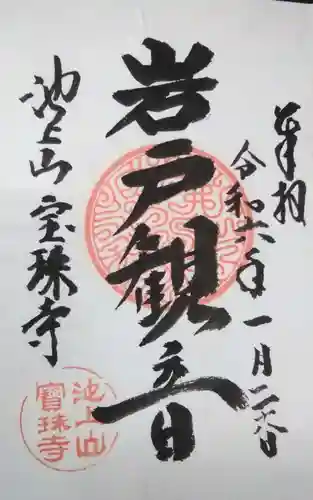 奉拝
令和六年一月二日
岩戸観音
池上山 宝珠寺
池上山
寶珠寺